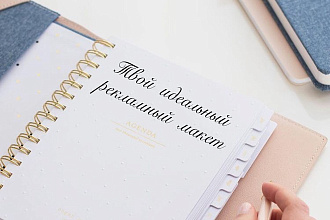 Твой идеальный
рекламный макет
AGENDA